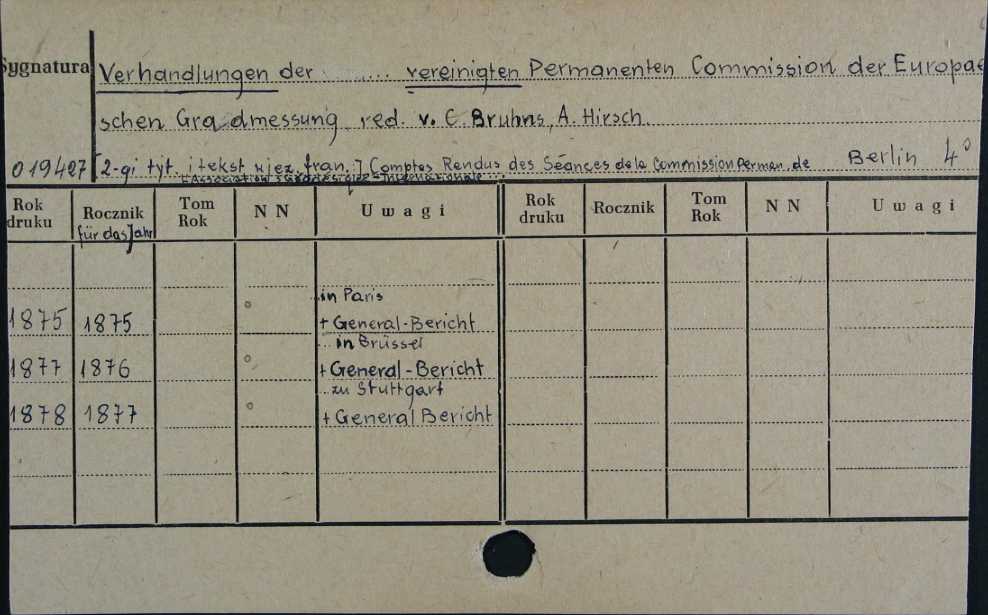 Sygnatura Verhandlungen der ... vereinigten Permanenten Commission der Europäe
schen Gradmessung red. v. C. Bruhns, A. Hirsch
019427 [2-gi tyt. i tekst w jęz. fran.] Comptes Rendus des Séances de la Commission Perman. de Berlin 4°
l'Association Géodésique Internationale
Rok druku Rocznik Tom Rok N N Uwagi Rok druku Rocznik Tom Rok N N Uwagi
für das Jahr
in Paris
1875 1875 + General-Bericht
... in Brüssel
1877 1876 + General-Bericht
... zu Stuttgart
1878 1877 + General Bericht